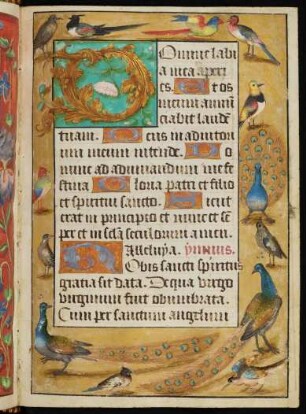 Domine labi
a mea aperi
es. Et os
meum annun
ciabit laudē
tuam. Deus in adiutori
um meum intende. Do
mine ad adiuvandum me fe
stina Gloria patri et filio
et spiritui sancto. Sicut
erat in principio et nunc et sē
per et in secla seculorum amen.
Alleluya. ymnus.
Nobis sancti spiritus
gratia sit data. De qua virgo
virginum fuit obumbrata.
Cum per sanctum angelum